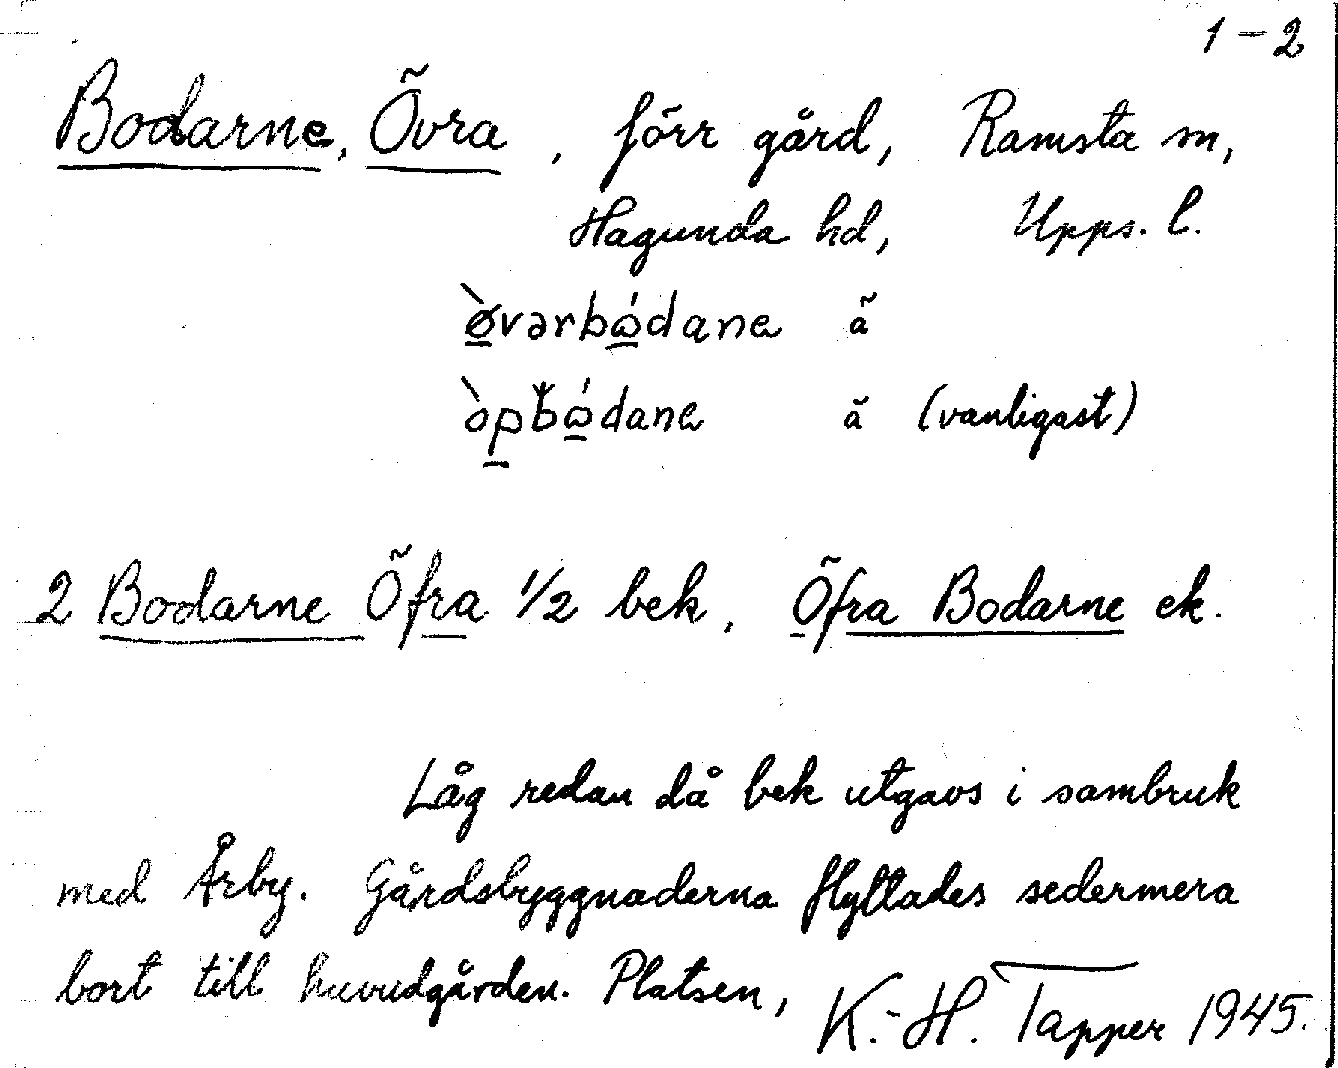 1-2
Bodarne, Övra, förr gård, Ramsta sn,
Hagunda hd, Upps. l.
ø̀vərbɷ́danə ã
òpbɷ́danə ã (vanligast)
2 Bodarne Öfra 1/2 bek, Öfra Bodarne ek.
Låg redan då bek utgavs i sambruk
med Årby. Gårdsbyggnaderna flyttades sedermera
bort till huvudgården. Platsen,
K.-H. Tapper 1945.